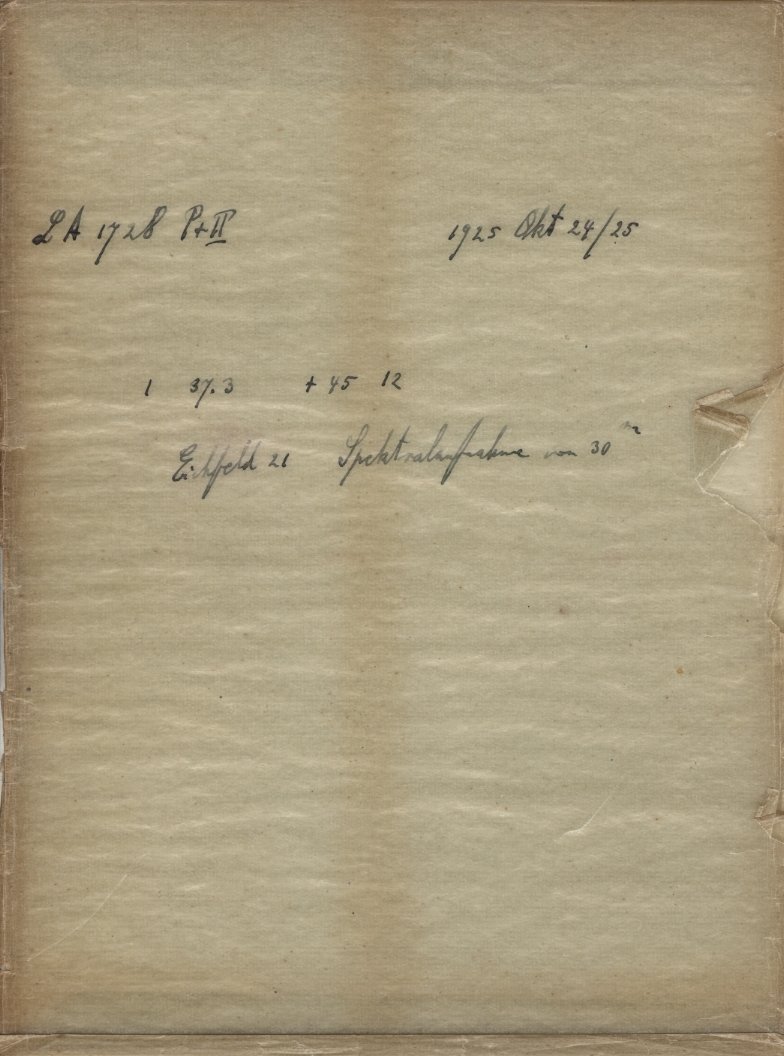 LA 1728 P+II 1925 Okt 24/25
1 37.3 +45 12
Eichfeld 21 Spektralaufnahme von 30ᵐ